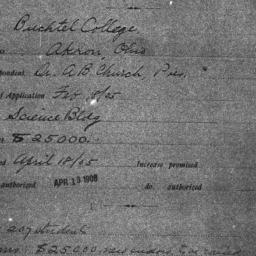 Buchtel College,
Akron, Ohio
pondent Dr. A B Church, Pres.
of Application Feb 8/05
Science Bldg
$25000.
April 18/05 Increase promised
authorized APR 13 1908 do. authorized
207 students
$25,000, new endow. to be raised